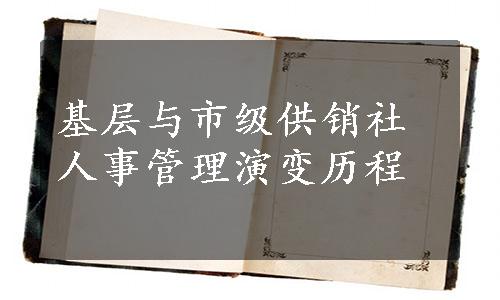 基层与市级供销社
人事管理演变历程